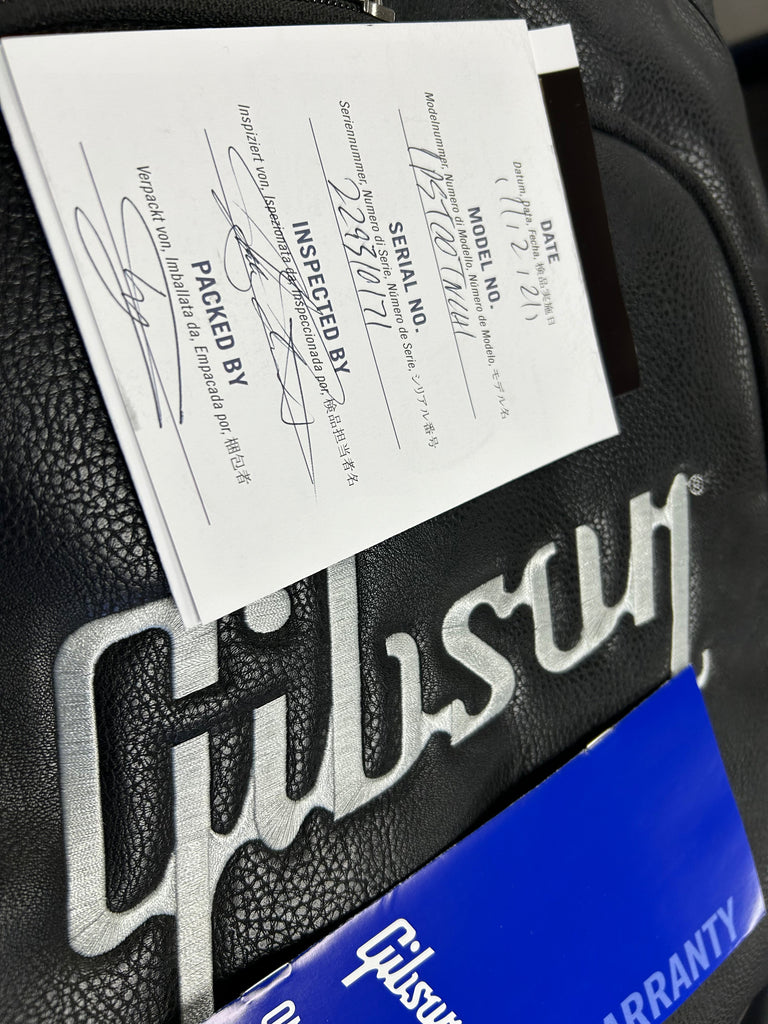 DATE
Datum, Data, Fecha, 検品実施日
MODEL NO.
Modelnummer, Numero di Modello, Número de Modelo, モデル名
LPST00TNCH1
SERIAL NO.
Seriennummer, Numero di Serie, Número de Serie, シリアル番号
229310171
INSPECTED BY
Inspiziert von, Ispezionata da, Inspeccionada por, 検品担当者名
PACKED BY
Verpackt von, Imballata da, Empacada por, 梱包者
Gibson®
Gibson
ARRANTY